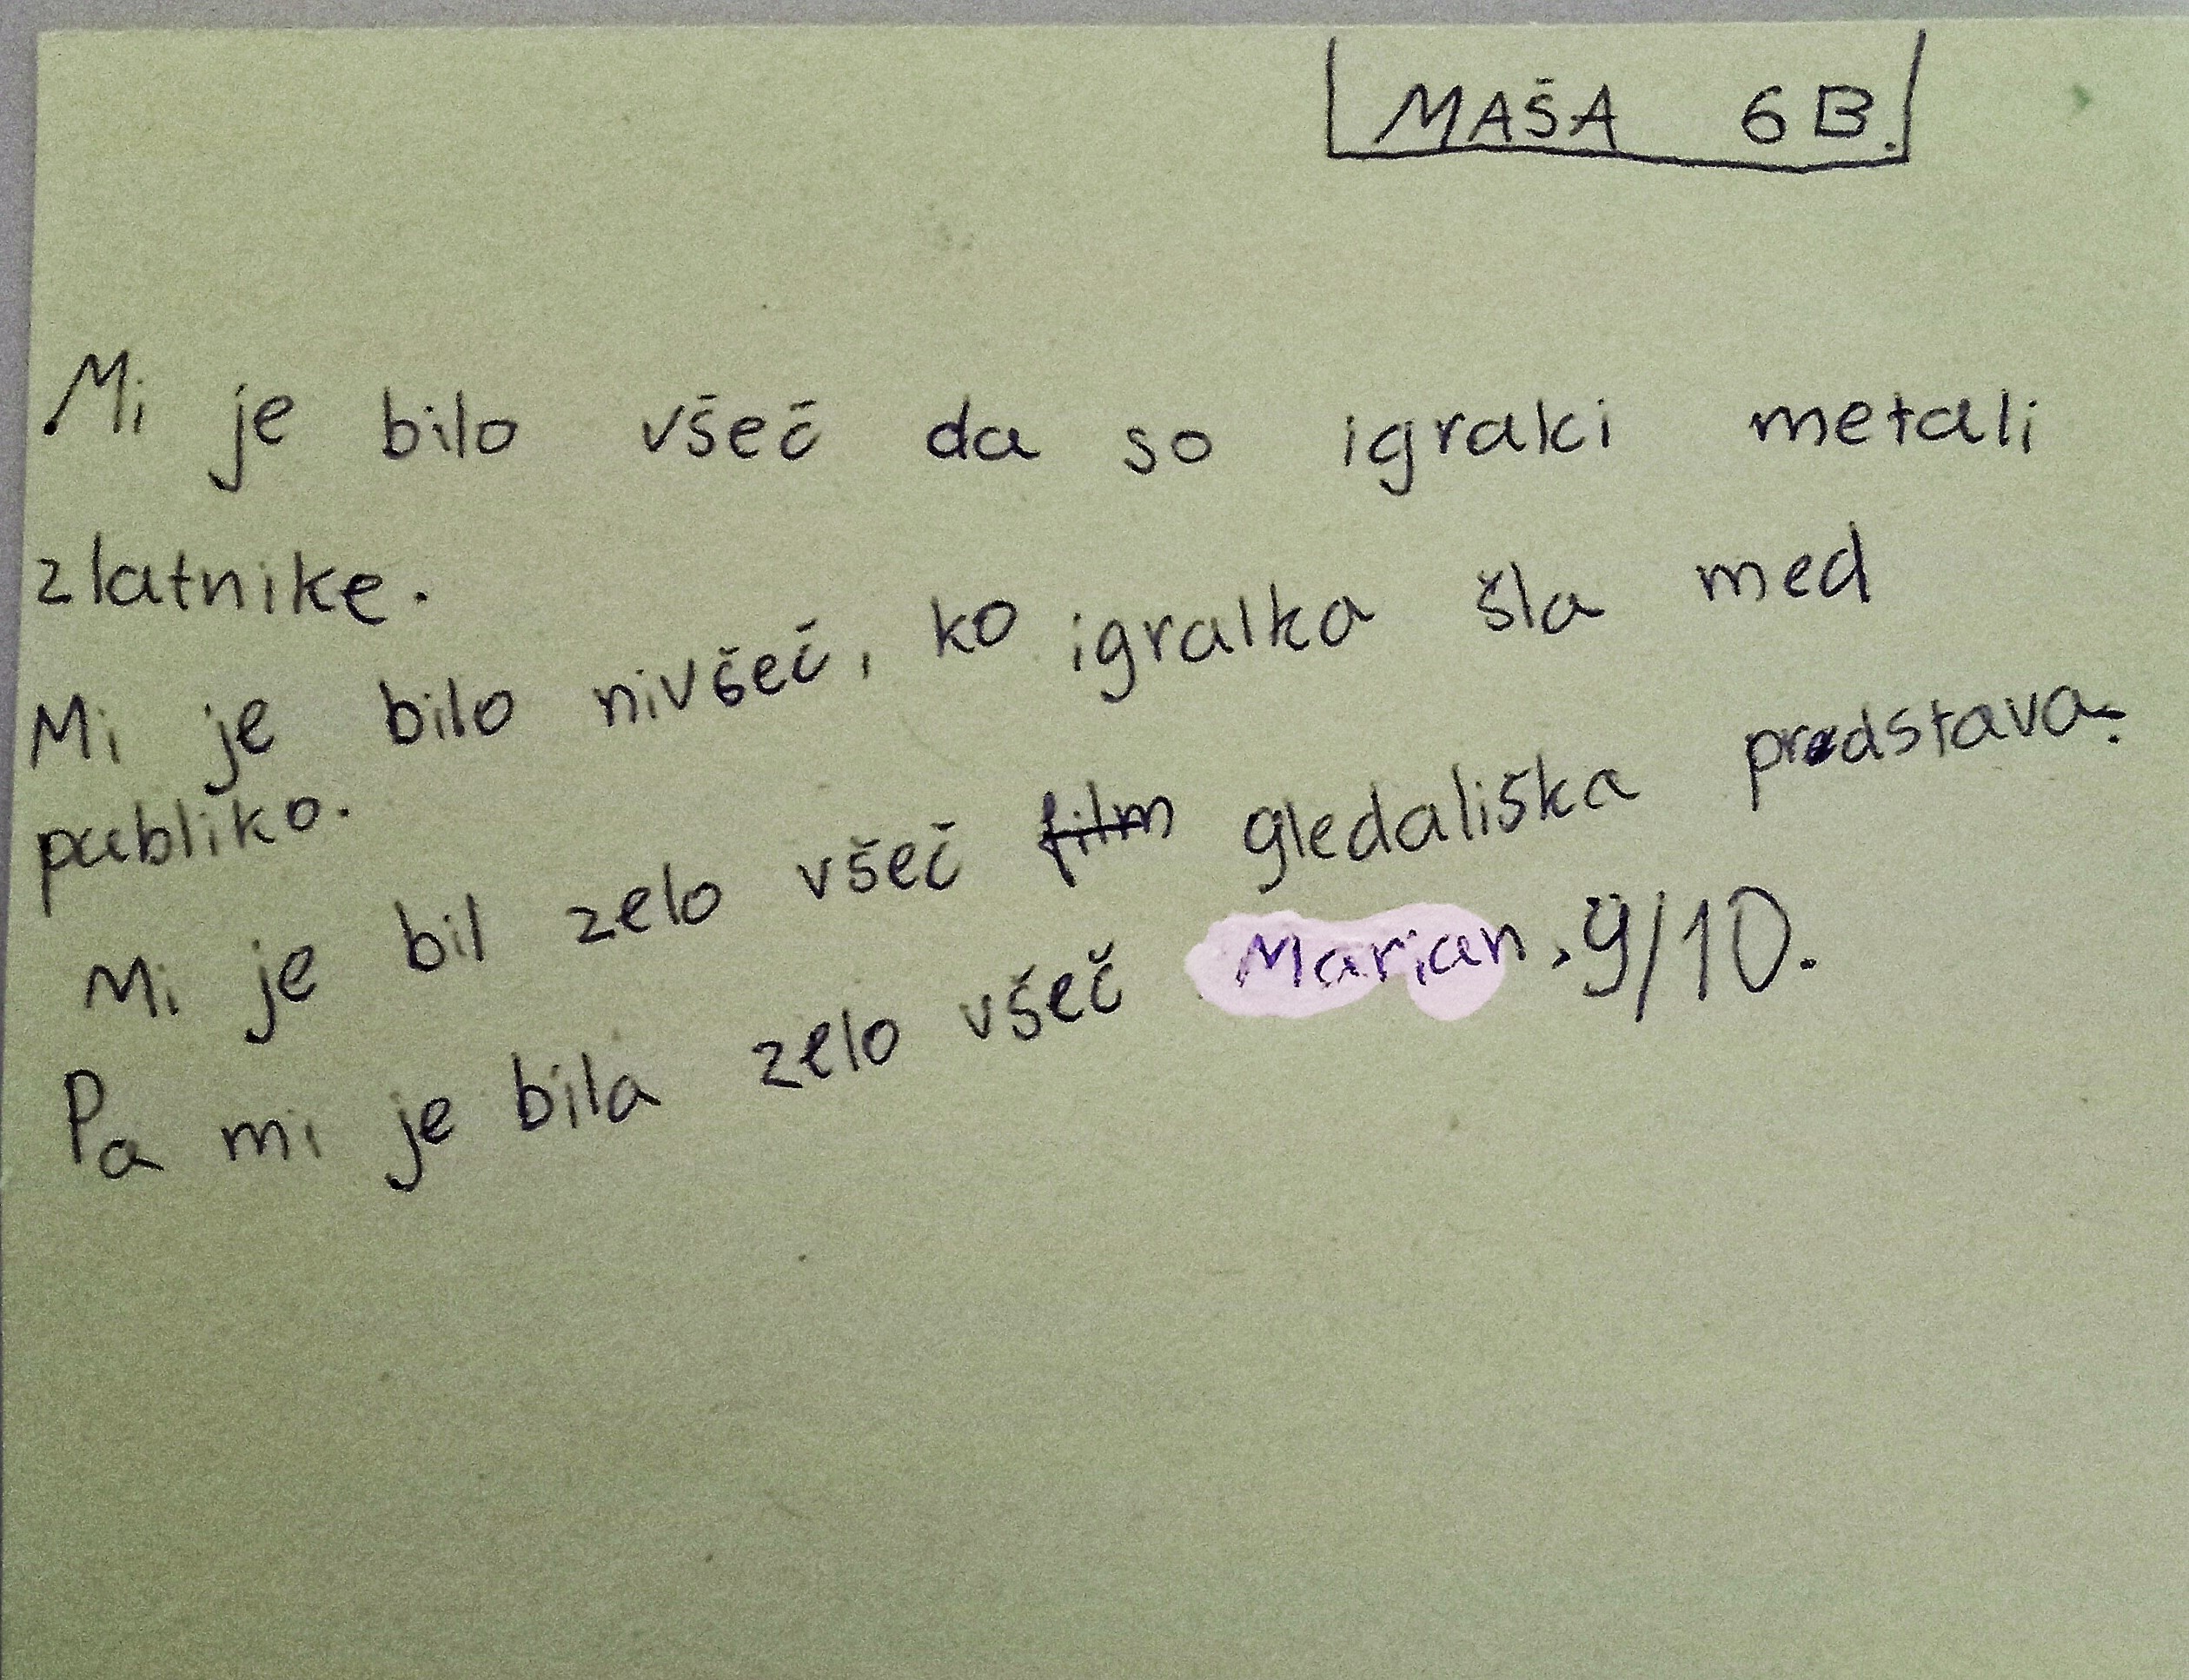 MAŠA 6B.
Mi je bilo všeč da so igraki metali
zlatnike.
Mi je bilo nivšeč, ko igralka šla med
publiko.
Mi je bil zelo všeč film gledališka predstava.
Pa mi je bila zelo všeč Marian. 9/10.